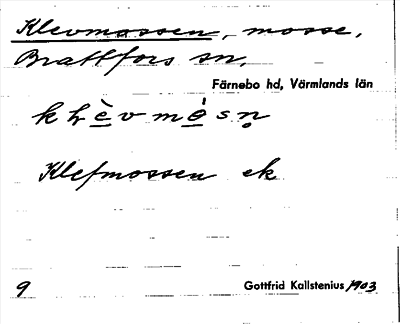 Klevmossen, mosse,
Brattfors sn.
Färnebo hd, Värmlands län
kḷè̱vmò̱sn̥
Klefmossen ek
9 Gottfrid Kallstenius 1903